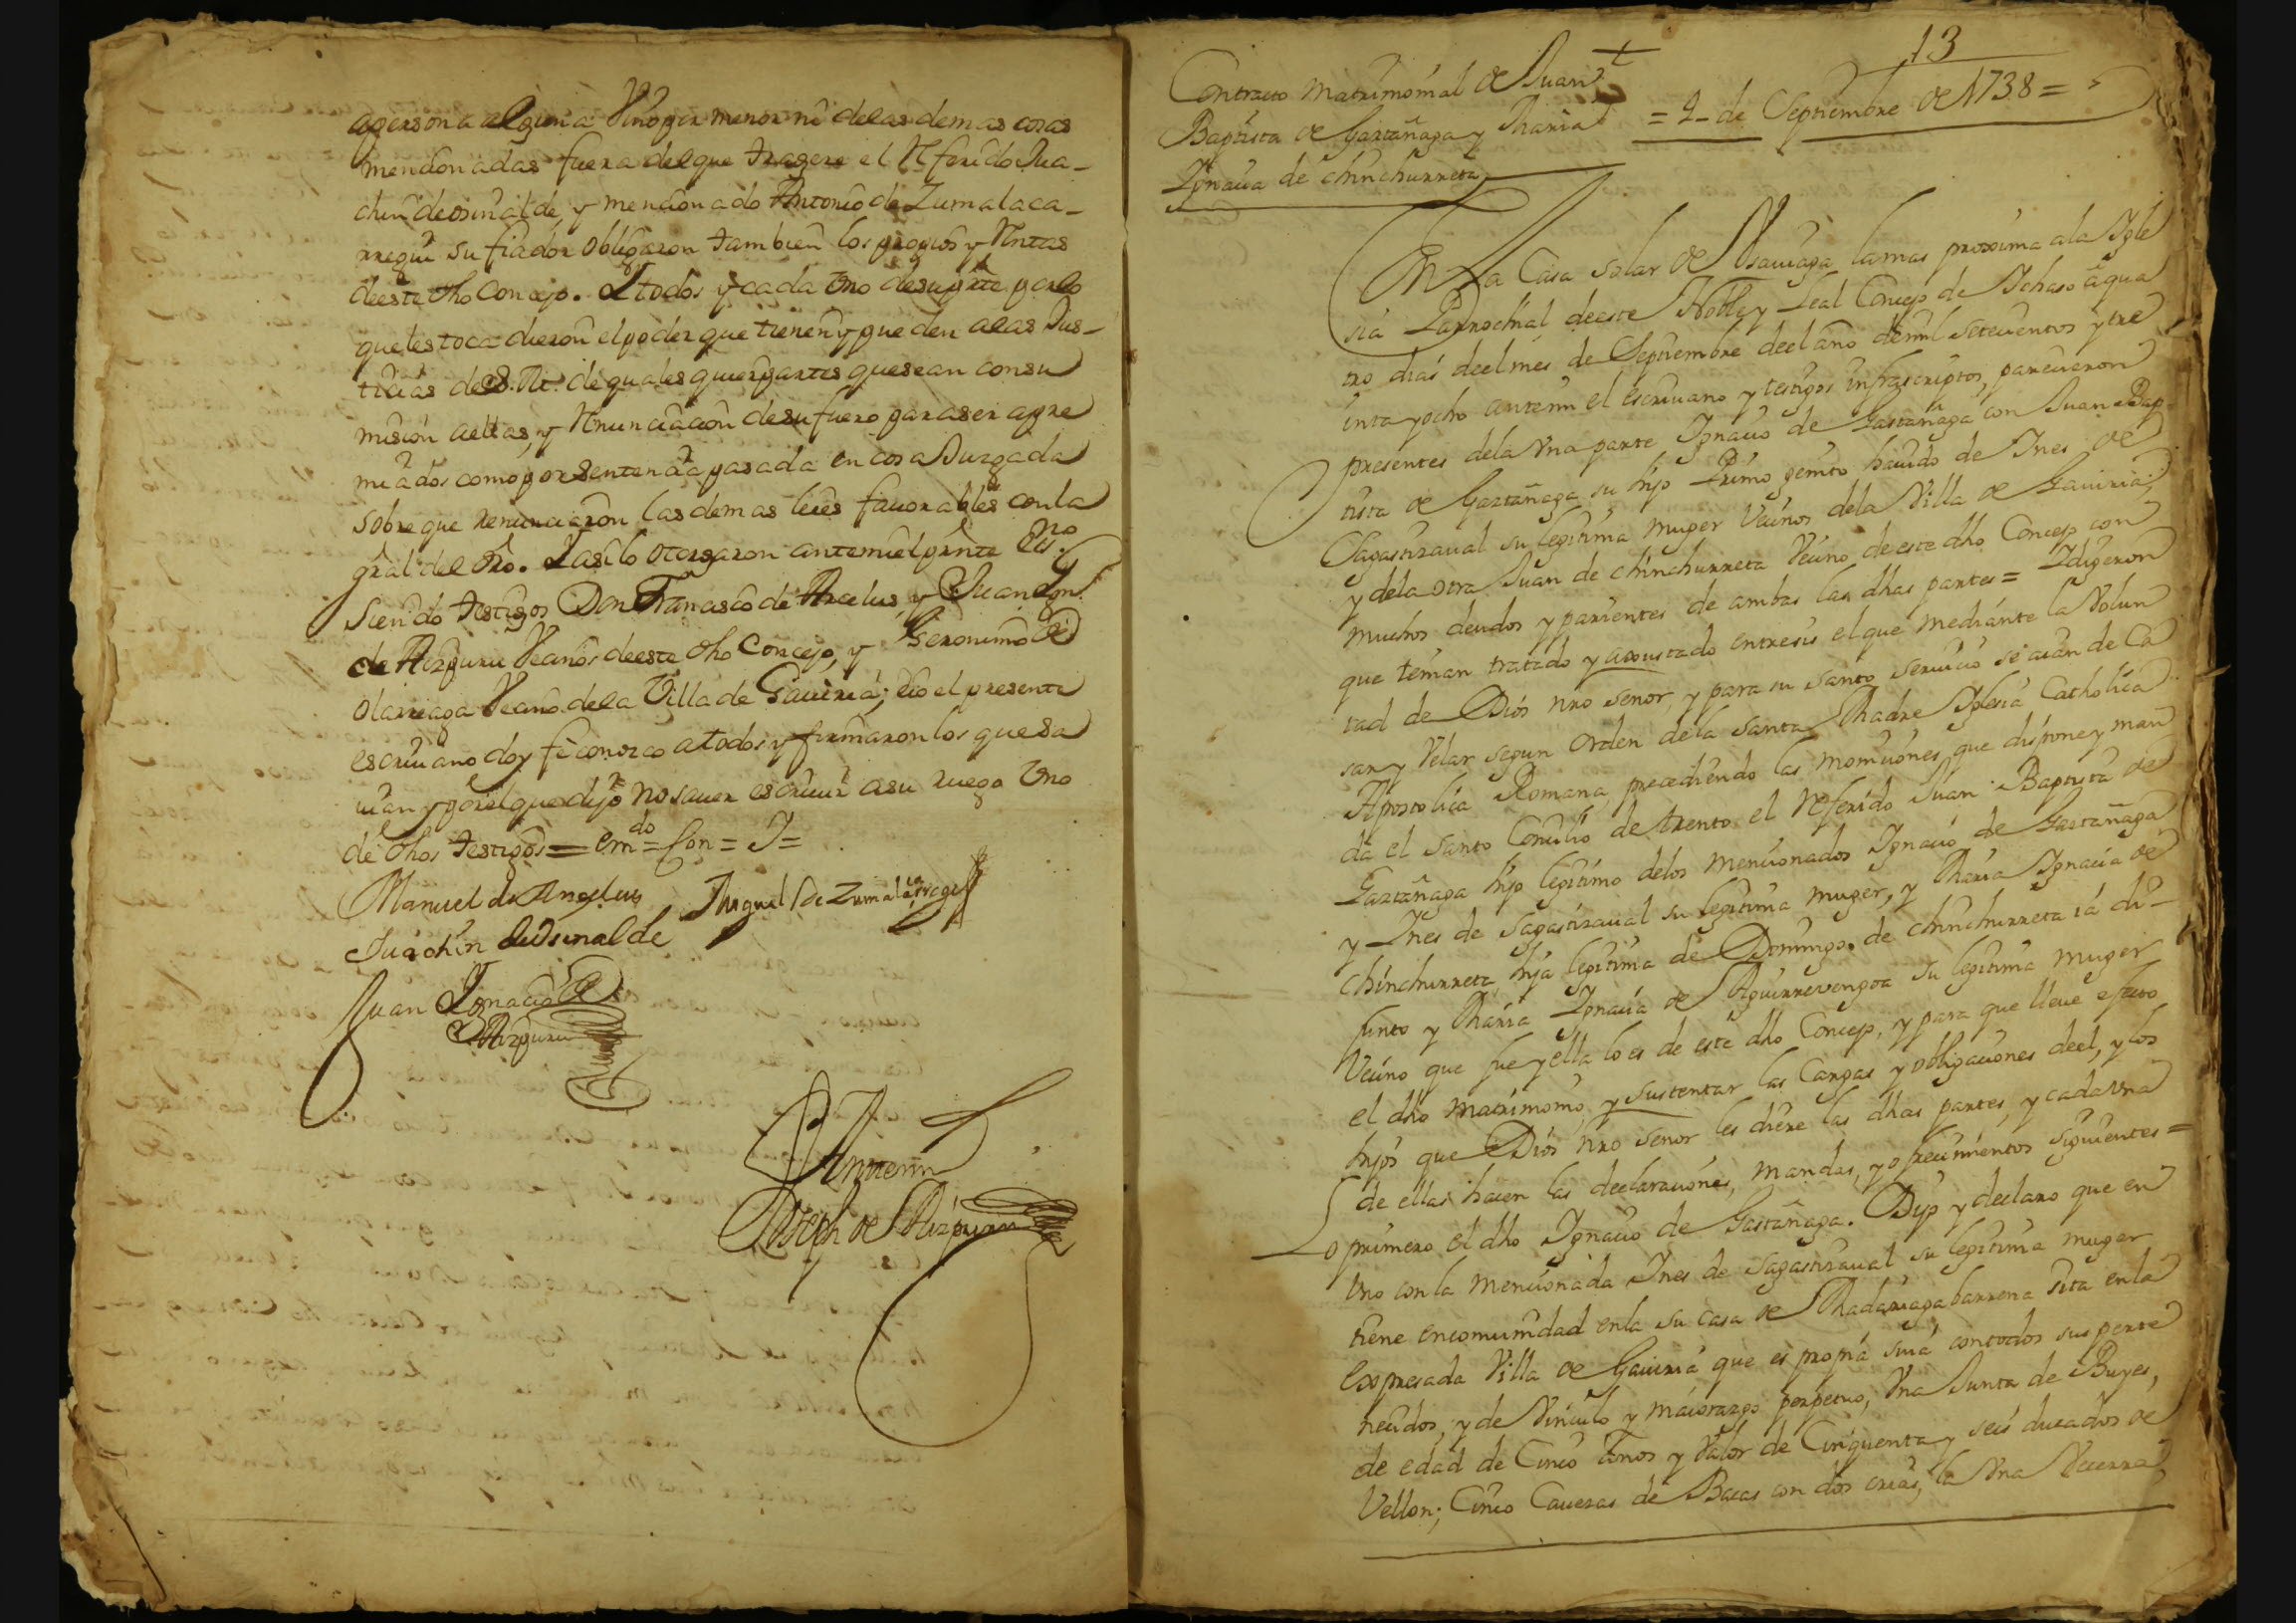 apersona alguna Vino por menor ni delas demas cosas
mencionadas fuera del que tragere el Referido Jua-
chin de osinalde, y mencionado Antonio de Zumalaca-
rregui su fiador obligaron tambien los propios y Rentas
de este dho Concejo. Y todos y cada Vno de su parte por lo
que les toca dieron el poder que tienen y pueden alas Jus-
ticias de S. M. de quales quier partes que sean con su
mision aellas, y Renunciacion de su fuero para ser apre
miados como por Sentencia pasada en cosa Juzgada
sobre que renunciaron las demas leies fauorables con la
gral del dro. Y asi lo otorgaron ante mi el prnte Esno
Siendo testigos Don Francisco de Arcelus, y Juan Ygn.
de Aizpuru Vecinos de este dho Concejo, y Geronimo de
olarriaga Vecino dela Villa de Gauiria; e io el presente
escriuano doy fe conozco a todos y firmaron los que sa
uian y por el que dijo no sauer escriuir a su ruego Vno
de dhos testigos = emdo = con = J =
Manuel de Anselus Miguel de Zumalacarregui
Juachin de Osinalde
Juan Ignacio de
Aizpuru
Ante mi
Joseph de Aizpuru
13
Contracto Matrimonial de Juan
Baptista de Gaztañaga y Maria = 4 - de Septiembre de 1738 =
Ignacia de Chinchurreta
En La Casa Solar de Vsauiaga la mas proxima ala Ygle
sia Parrochial de este Noble y Leal Concejo de Ychaso a qua
tro dias de el mes de Septiembre de el año de mil setecientos y tre
inta y ocho ante mi el escriuano y testigos infrascriptos, parecieron
presentes dela Vna parte Ignacio de Gaztañaga con Juan Bap
tista de Gaztañaga su hijo Primo genito hauido de Ines de
Sagastizaual su legitima muger Vecinos dela Villa de Gauiria,
y dela otra Juan de Chinchurreta Vecino de este dho Concejo con
muchos deudos y parientes de ambas las dhas partes = Y digeron
que tenian tratado y axoustado entre sis el que mediante la Volun
tad de Dios nro señor, y para su santo seruicio se aian de Ca
sar y Velar segun orden dela Santa Madre Yglesia Catholica
Apostolica Romana, precediendo las moniciones que dispone y man
da el Santo Concilio de trento el Referido Juan Baptista de
Gaztañaga hijo legitimo delos mencionados Ignacio de Gaztañaga
y Ines de Sagastizaual su legitima muger, y Maria Ignacia de
Chinchurreta hija legitima de Domingo de Chinchurreta ia di-
funto y Maria Ignacia de Aguirrevengoa su legitima muger
Vecino que fue y ella lo es de este dho Concejo, y para que lleue efecto
el dho matrimonio, y sustentar las Cargas y obligaciones de el, y los
hijos que Dios nro señor les diere las dhas partes, y cada vna
de ellas hacen las declaraciones, mandas, y ofrecimientos siguientes =
Lo primero el dho Ignacio de Gaztañaga. Dijo y declaro que en
vno con la mencionada Ines de Sagastizaual su legitima muger
tiene en comunidad en la su casa de Madariagabarrena sita en la
expresada Villa de Gauiria que es propia suia con todos sus perte
necidos, y de Vinculo y maiorazgo perpetuo, Vna Junta de Bueyes,
de edad de Cinco años y Valor de Cinquenta y seis ducados de
Vellon; Cinco Caueras de Bacas con dos crias, la Vna Becerra